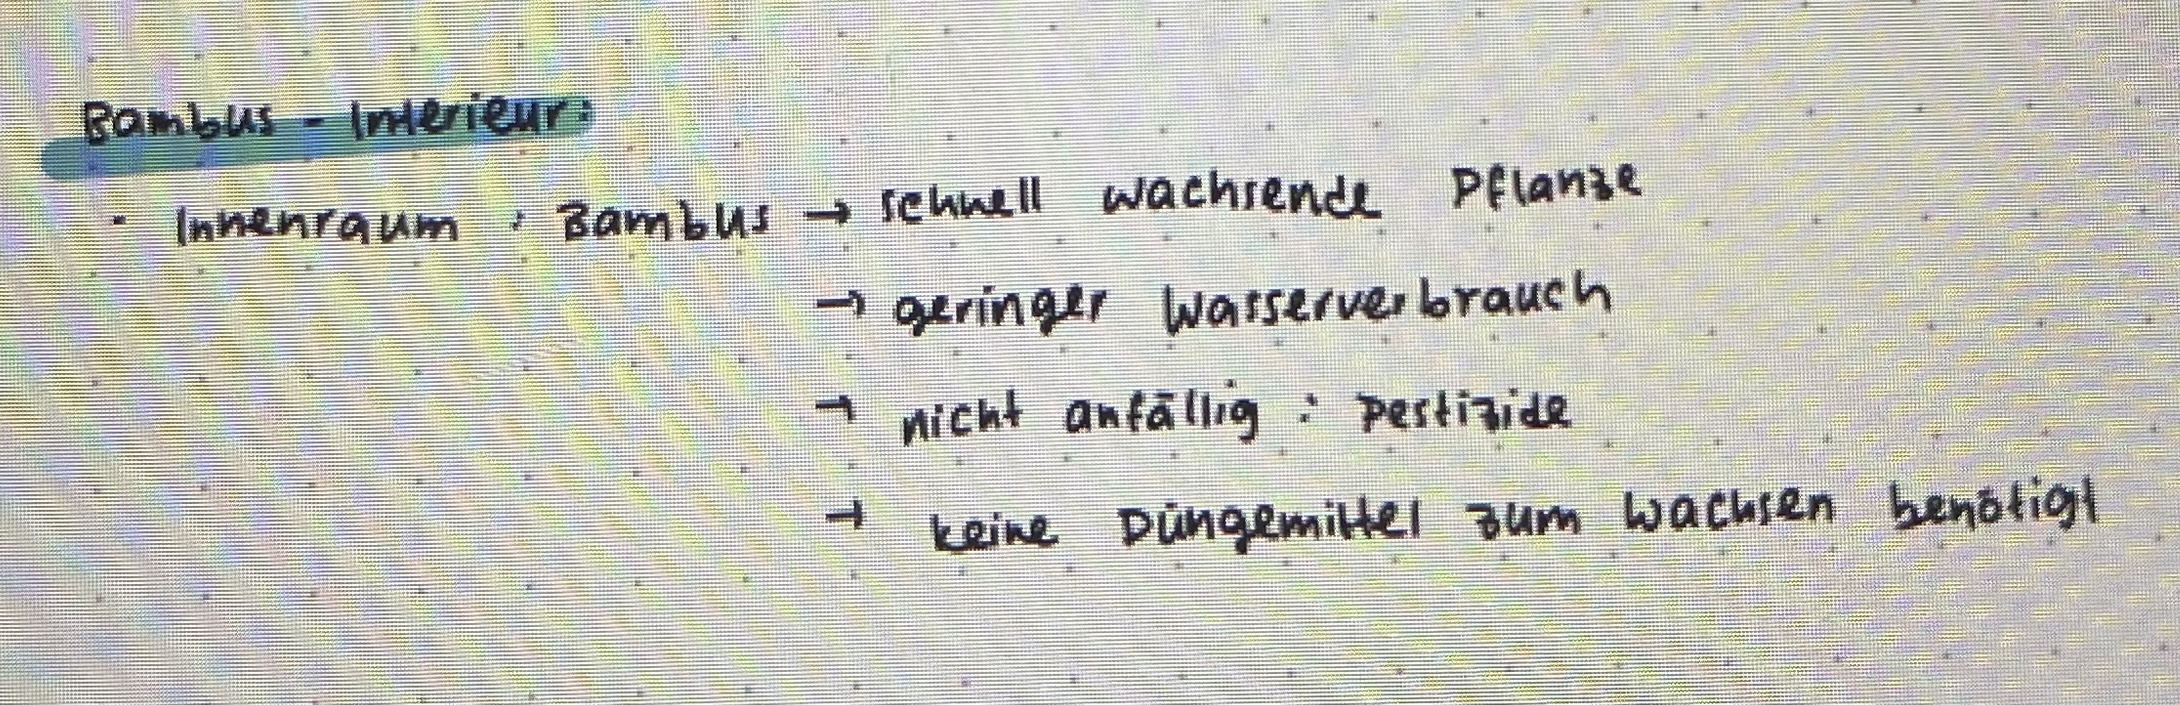 Bambus - Interieur:
- Innenraum : Bambus → schnell wachsende Pflanze
→ geringer Wasserverbrauch
→ nicht anfällig : Pestizide
→ keine Düngemittel zum wachsen benötigt